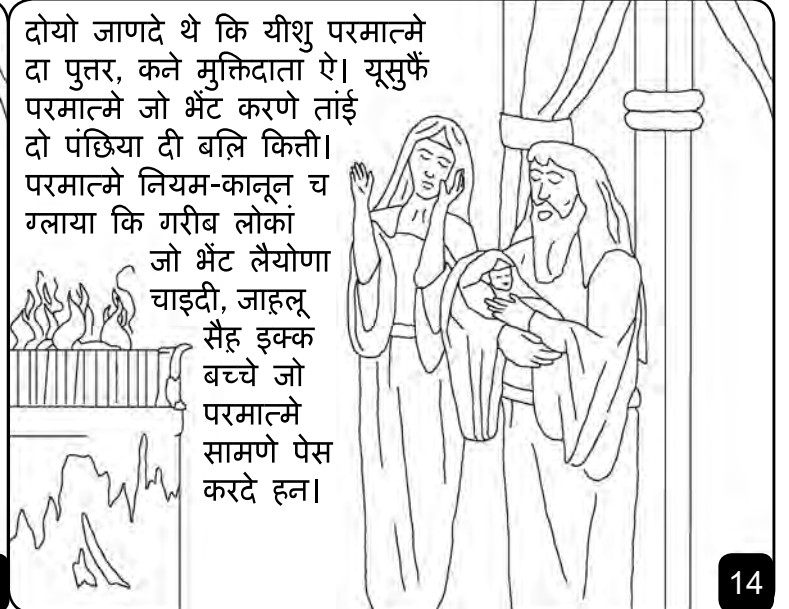 दोयो जाणदे थे कि यीशु परमात्मे
दा पुत्तर, कने मुक्तिदाता ऐ। यूसुफैं
परमात्मे जो भेंट करणे तांई
दो पंछिया दी बलि कित्ती।
परमात्मे नियम-कानून च
ग्लाया कि गरीब लोकां
जो भेंट लैयोणा
चाइदी, जाह़लू
सैह़ इक्क
बच्चे जो
परमात्मे
सामणे पेस
करदे हन।
14